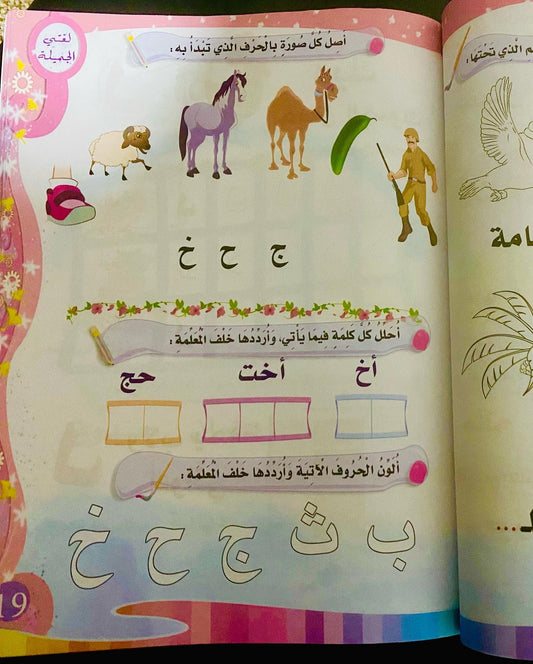 لغتي
الجميلة
أَصِلُ كُلَّ صُورَةٍ بِالْحَرْفِ الَّذِي تَبْدَأُ بِهِ :
ج ح خ
أُحَلِّلُ كُلَّ كَلِمَةٍ فِيمَا يَأْتِي، وَأُرَدِّدُهَا خَلْفَ الْمُعَلِّمَةِ :
أخ أخت حج
أُلَوِّنُ الْحُرُوفَ الْآتِيَةَ وَأُرَدِّدُهَا خَلْفَ الْمُعَلِّمَةِ :
ب ث ج ح خ
19
الَّذِي تَحْتَهَا :
امة